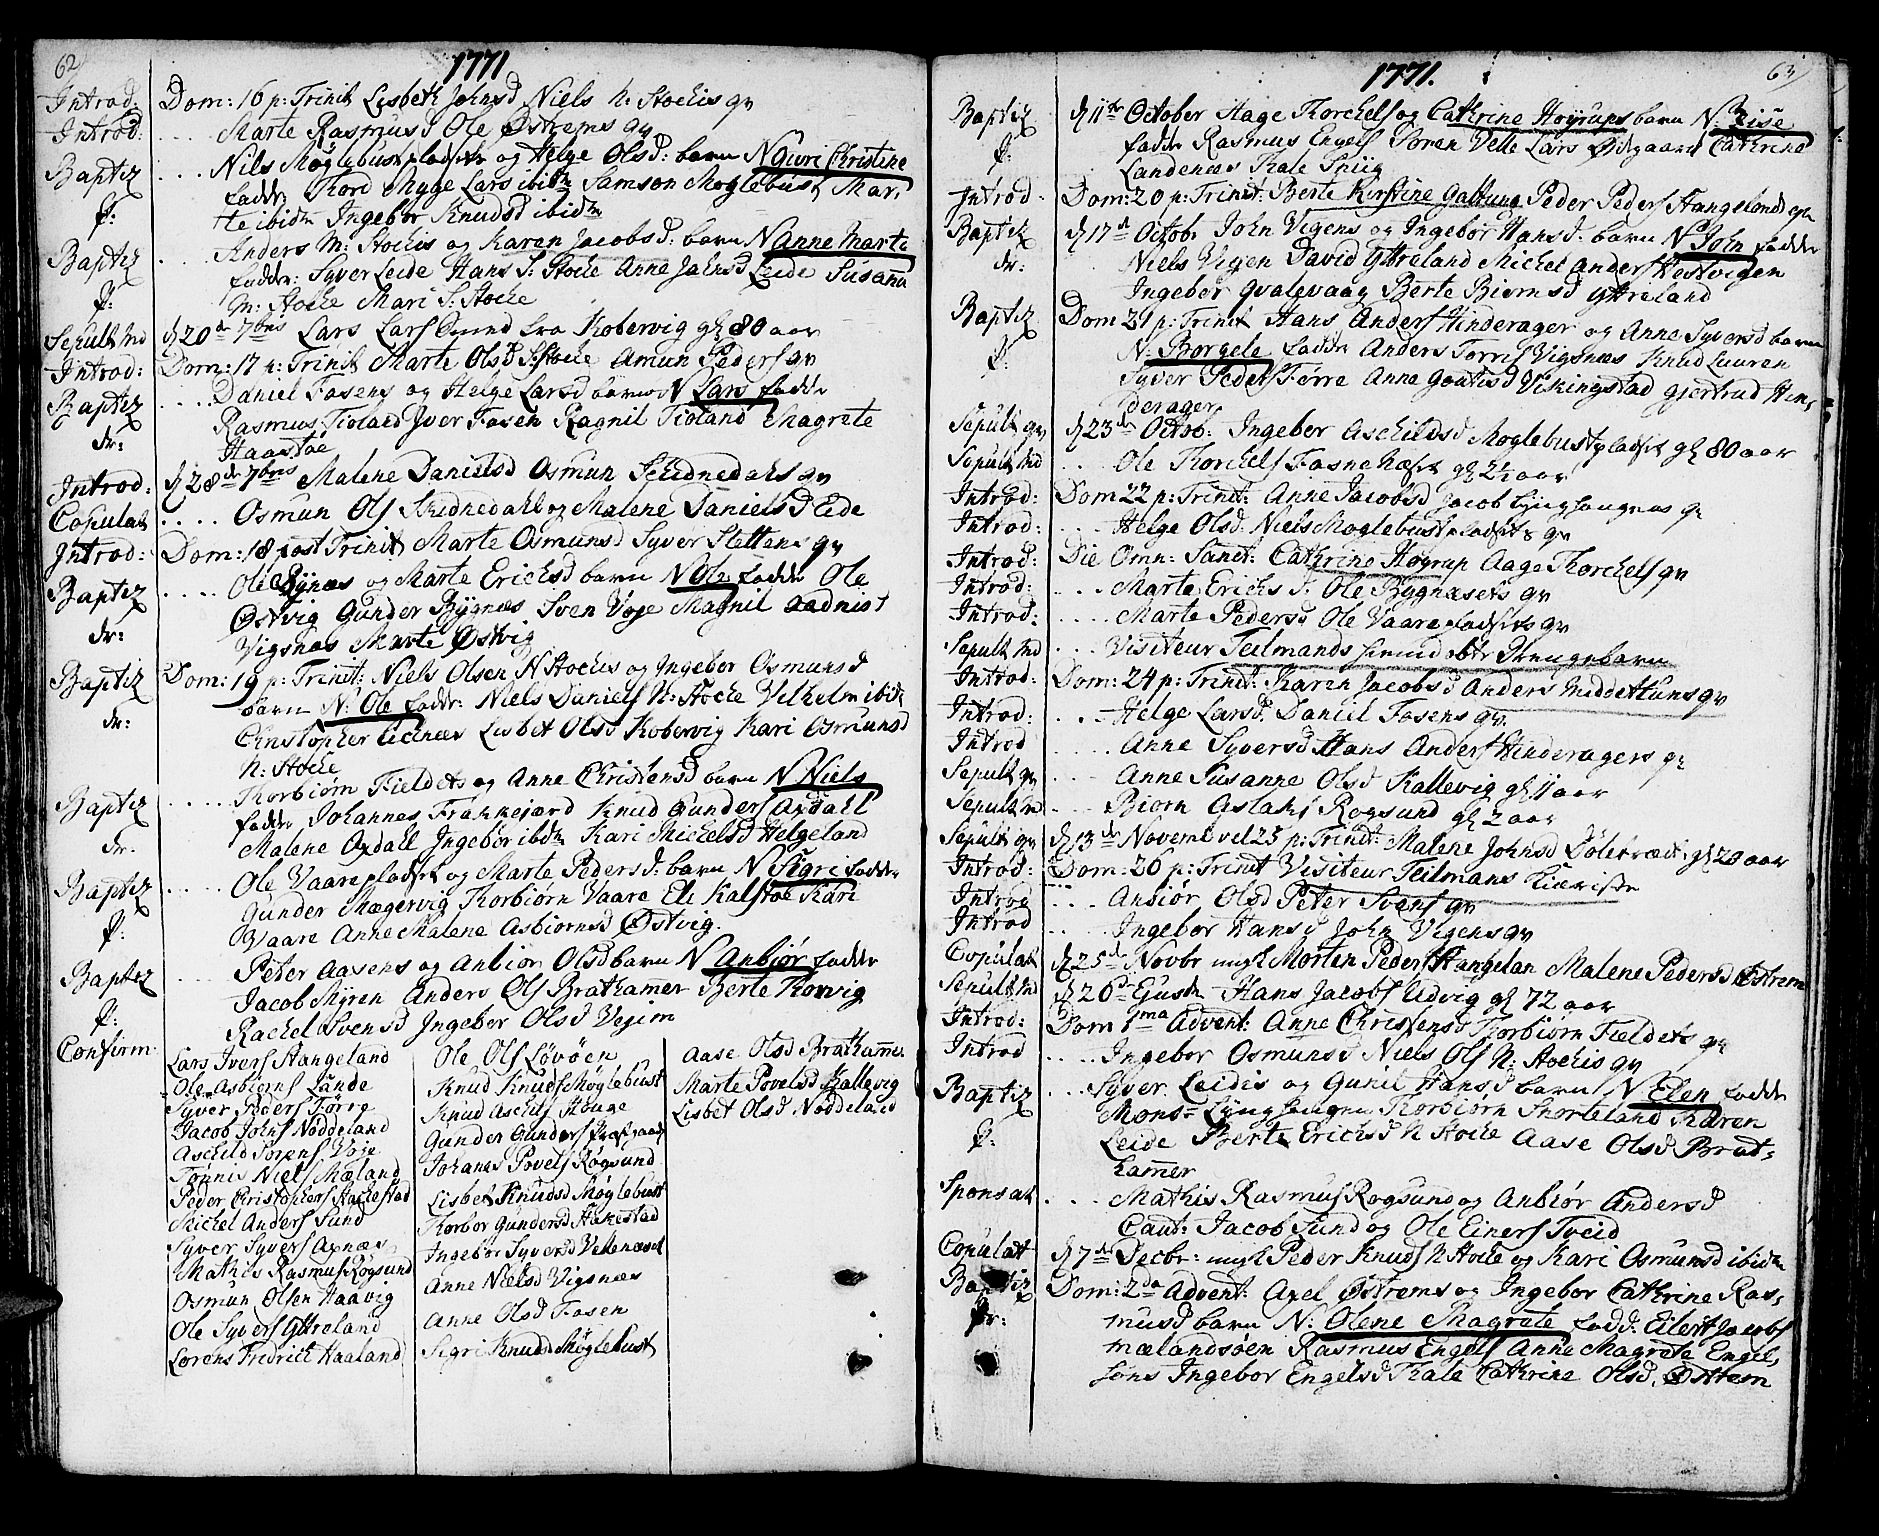 62
1771
Introd: Dom: 16 p: Trinit Lisbeth Johnsd Niels N: Stockis qv
Introd: .... Marte Rasmusd Ole Østrems qv
Baptiz .... Nils Møglebustpladsete og Helge Olsd: barn N Guri Christine
p: fadde Thord Myge Lars ibidm Samson Moglebust Mar,
te ibidm Ingebor Knudsd ibidm
Baptiz .... Anders M: Stockis og Karen Jacobsd: barn N Anne Marte
p: fadde: Syver Leide Hans S: Stocke Anne Johnsd Leide Susanna
M: Stocke Mari S: Stocke
Sepult Md d 20de 7bris Lars Lars fra Kobervig gl 80 aar
Introd: Dom: 17 p: Trinit Marte Olsd S: Stocke Amun Peders qv
Baptiz .... Daniel Fosens og Helge Larsd barn N Lars fadde
dr: Rasmus Tioland Jver Fosen Ragnil Tioland Magrete
Haastøe
Introd: d 28de 7bris Malene Danielsd Osmun Skednedahls qv
Copulat .... Osmun Ols Skidnedahl og Malene Danielsd Eide
Introd: Dom: 18 post Trinit Marte Osmunsd Syver Stettens qv
Baptiz .... Ole Bygnæs og Marte Ericksd barn N Ole fadde Ole
dr: Østvig Gunder Bygnæs Sven Voje Magnil Aadnisd
Vigsnæs Marte Østvig
Baptiz Dom: 19 p: Trinit: Niels Olsen N Stockis og Ingebor Osmunsd
dr: barn N: Ole fadde: Niels Daniels N: Stocke Vilhelm ibidm
Christopher Licknæs Lisbet Olsd Kobervig Kari Osmunsd
N: Stocke
Baptiz .... Thorbiørn Fieldets og Anne Christensd barn N Niels
dr. fadde Johannes Frakkejærd Knud Gunders Axdall
Malene Axdall Ingebør ibidm Kari Mickelsd Helgeland
Baptiz .... Ole Vaarepladset og Marte Pedersd: barn N Sigri fadde
p: Gunder Mægervig Thorbiørn Vaare Eli Kalstøe Kari
Vaare Anne Malene Asbiornsd Østvig.
Baptiz .... Peter Aasens og Anbiør Olsd barn N Anbiør fadde
p: Jacob Myren Anders Ols Bratkamer Berte Thorvig
Rachel Svensd Ingebor Olsd Vejim
Confirm
Lars Jvers Stangeland
Ole Asbiorns Lande
Syver Peders Førre
Jacob Johns Nøddeland
Aschild Sørens Voje
Tønnis Niels Mæland
Peder Christophers Hackestad
Mickel Anders Sund
Syver Syvers Axnæs
Mathis Rasmus Røgsund
Osmun Olsen Haavig
Ole Syvers Yttreland
Lorens Fredrich Haaland
Ole Ols Løvøen
Knud Knuds Møglebust
Knud Aschels Houge
Gunder Gunders Præstgaard
Johanes Povels Røgsund
Lisbet Knudsd Møglebust
Thorbor Gundersd Hakestad
Ingebor Syversd Vellenæset
Anne Nielsd Vigsnæs
Anne Olsd Fosen
Sigri Knudsd Møglebust
Aase Olsd Bratkamer
Marte Povelsd Kallevig
Lisbet Olsd Noddeland
1771.
63
Baptiz d 11te October Aage Thorckels og Cathrine Høyrups barn N: Lise
p: fadde Rasmus Engels Soren Velle Lars Ødegaard Cathrine
Landenæs Kale Spiig
Introd. Dom: 20 p: Trinit: Berte Kirstine Galtung Peder Peders Stangelands qv
Baptiz d 17de Octobr John Vigens og Ingebor Hansd: barn N John fadde
dr: Niels Vigen David Yttreland Mickel Anders Hestvigen
Ingebor Qvalevaag Berte Biornsd Yttreland
Baptiz Dom 21 p: Trinit Hans Anders Hinderager og Anne Syversd barn
p: N: Borgele fadde Anders Torris Vigsnæs Knud Luuren
Syver Peders Førre Anne Goutisd Vikingstad Gjertrud Hin,
derager
Sepult qv d 23de Octob: Ingebor Aschildsd Moglebustpladset gl 80 aar
Sepult Md .... Ole Thorckels Fosnenæset gl 21 aar
Introd: Dom 22 p: Trinit: Anne Jacobsd Jacob Lynghougnæs qv
Introd: .... Helge Olsd: Niels Moglebustpladsets qv
Introd: Die Omn: Sanct: Cathrine Høyrup Aage Thorckels qv
Introd: .... Marte Ericks d: Ole Bygnæsets qv
Introd: .... Marte Pedersd Ole Vaarepladsets qv
Sepult Md .... Visiteur Teilmands Drengebarn
Introd: Dom: 24 p: Trinit: Karen Jacobsd Anders Middeltuns qv
Introd: .... Helge Larsd. Daniel Fosens qv.
Introd .... Anne Syversd Hans Anders Hinderagers qv
Sepult qv .... Anne Susanne Olsd Kallevig gl 11 aar
Sepult m .... Biorn Aslaks Rogsund gl 2 aar
Sepult qv d 13de Noveml vel 25 p: Trinit: Malene Johnsd Dole gl 20 aar
Introd: Dom: 26 p: Trinit Visiteur Teilmans Kieriste
Introd .... Anbiør Olsd Peter Svens qv
Introd .... Ingebor Hansd John Vigens qv
Copulat d 25de Novbr Morten Peders Stangelan Malene Pedersd Østrem
Sepult Md d 26 Ejusdm Hans Jacobs Udvig gl 72 aar
Introd: Dom 1ma Advent: Anne Christensd Thorbiørn Fieldets qv
Introd .... Ingebor Osmunsd Niels Ols N: Stockis qv
Baptiz .... Syver Leidis og Gunil Hansd barn N Elen fadde
p: Mons Lynghougen Thorbiørn Snoreland Karen
Leide Berte Ericksd N Stocke Aase Olsd Brat=
kamer
Sponsat .... Mathis Rasmus Rogsund og Anbiør Andersd
Caut: Jacob Sund og Ole Einers Tveid
Copulat d 7de Decbr: Peder Knuds N Stocke og Kari Osmunsd ibidm
Baptiz Dom: 2da Advent: Axel Østrems og Ingebor Cathrine Ras,
pr: musd barn N: Olene Magrete fadd: Eilert Jacobs
mælandsøen Rasmus Engels Anne Magrete Engel,
søns Ingebor Engelsd Kale Cathrine Olsd. Østrem